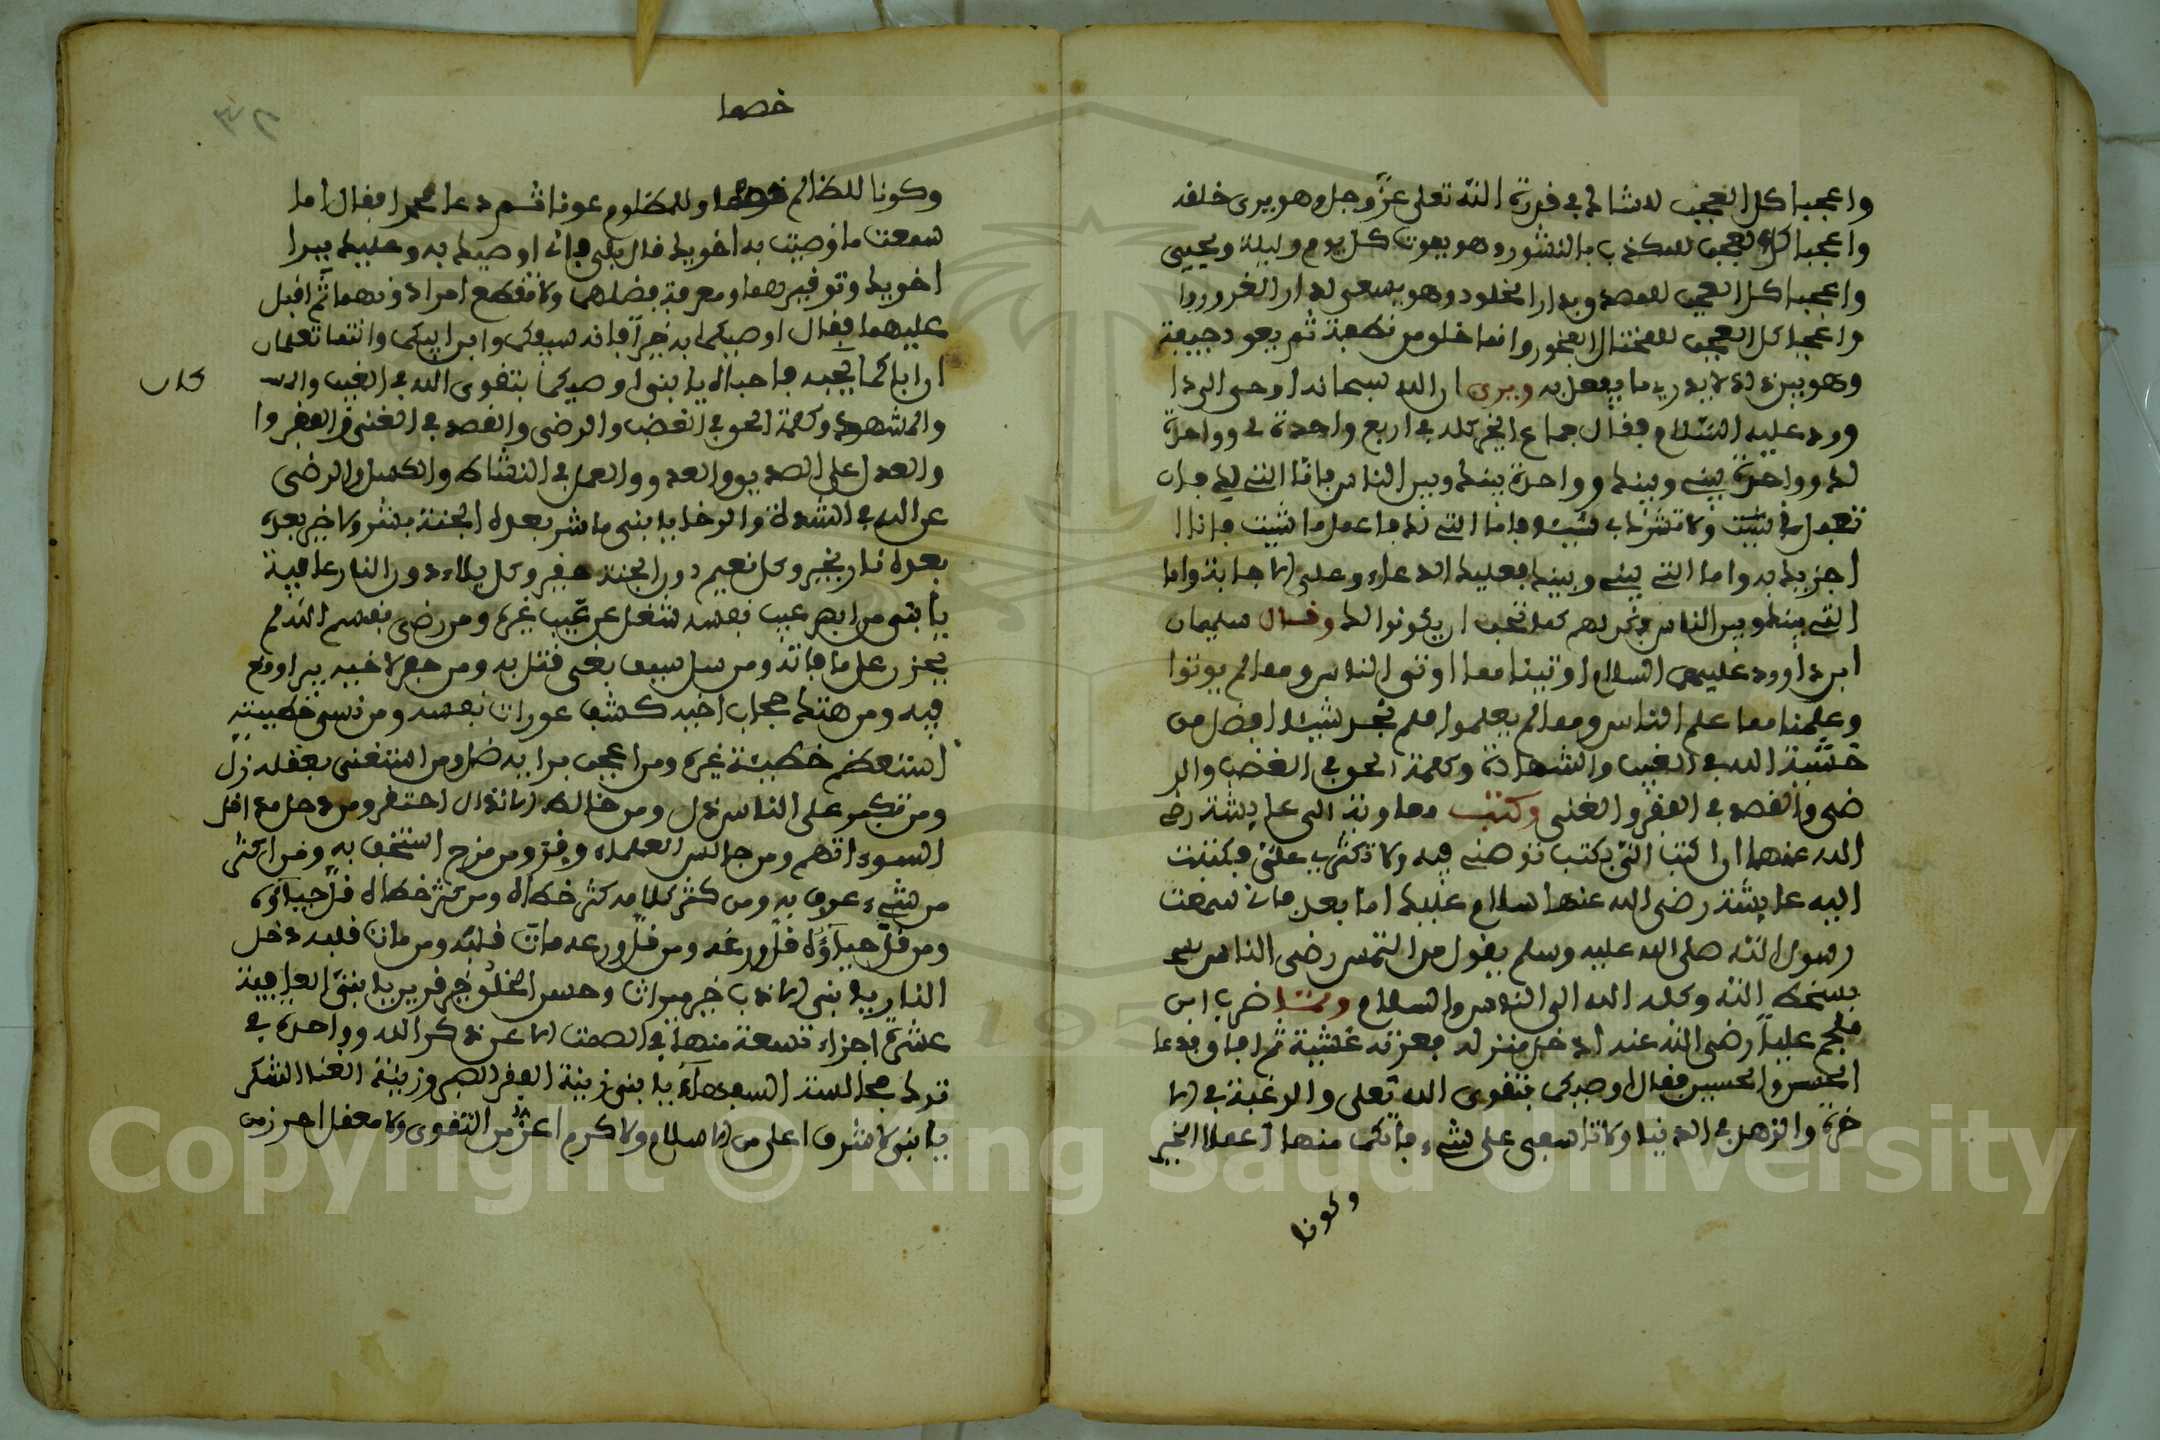 واعجبا كل العجب للشاك في قدرة الله تعلى عز وجل وهو يرى خلقه
واعجبا كل العجب للمكذب بالنشور وهو يموت كل يوم وليلة ويحيى
واعجبا كل العجب للمصدق بدار الخلود وهو يسعى لدار الغرور
واعجبا كل العجب للمختال الفخور وانما خلق من نطفة ثم يعود جيفة
وهو بين ذلك لا يدري ما يفعل به ويروى ان الله سبحانه اوحى الى دا
وود عليه السلام فقال جماع الخير كله في اربع واحدة لي وواحدة
لك وواحدة بيني وبينك وواحدة بينك وبين الناس فاما التي لي فان
تعبدني ولا تشرك بي شيئا واما التي لك فاعمل ما شيت فانا
اجزيك به واما التي بيني وبينك فعليك الدعاء وعلي الاجابة واما
التي بينك وبين الناس فكن لهم كما تحب ان يكونوا لك وقال سليمان
ابن داوود عليهم السلام اوتينا مما اوتي الناس ومما لم يوتوا
وعلمنا مما علم الناس ومما لم يعلموا فلم نجد شيئا افضل من
خشية الله في الغيب والشهادة وكلمة الحق في الغضب والر
ضى والقصد في الفقر والغنى وكتب معاوية الى عايشة رضي
الله عنها ان اكتبي الي بكتب توصني فيه ولا تكثري علي فكتبت
اليه عايشة رضى الله عنها سلام عليك اما بعد فاني سمعت
رسول الله صلى الله عليه وسلم يقول من التمس رضى الناس
بسخط الله وكله الله الى الناس والسلام ولما ضرب ابن
ملجم عليا رضى الله عنه ادخل منزله فعرته غشية ثم افاق فدعا
الحسن والحسين فقال اوصيكما بتقوى الله تعلى والرغبة في الا
خرة والزهد في الدنيا ولا تاسفى على شيء فاتكما منها اعملا الخير
وكونا
خصما
وكونا للظالم خصما وللمظلوم عونا ثم دعا محمدا فقال اما
سمعت ما اوصيت به اخويك قال بلى قال فاني اوصيك به وعليك ببر
اخويك وتوقيرهما ومعرفة فضلهما ولا تقطع امرا دونهما ثم اقبل
عليهما فقال اوصيكما به خيرا فانه سيفكما وابن ابيكما وانتما تعلمان
ان اباكما يحبه فاحباه يا بني اوصيكما بتقوى الله في الغيب
كان
والشهادة وكلمة الحق في الغضب والرضى والقصد في الغنى والفقر وا
والعدل على الصديق والعدو والعمل في النشاط والكسل والرضى
عن الله في الشدة والرخا يا بني ما شر بعده الجنة بشر ولا خير بعده
بعده نار بخير وكل نعيم دون الجنة حقير وكل بلاء دون النار عافية
يا بني من ابصر عيب نفسه شغل عن عيب غيره ومن رضي بقسم الله لم
يحزن على ما فاته ومن سل سيف بغي قتل به ومن حفر لاخيه بيرا وقع
فيه ومن هتك حجاب اخيه كشف عورات نفسه ومن نسي خطيئته
استعظم خطيئة غيره ومن اعجب برايه ضل ومن استغنى بعقله زل
ومن تكبر على الناس ذل ومن خالط الانذال احتقر ومن دخل مداخل
السوء اتهم ومن جالس العلماء وقر ومن مزح استخف به ومن اكثر
من شيء عرف به ومن كثر كلامه كثر خطاه ومن كثر خطاه قل حياؤه
ومن قل حياؤه قل ورعه ومن قل ورعه مات قلبه ومن مات قلبه دخل
النار يا بني الادب خير ميراث وحسن الخلق خير قرين يا بني العافية
عشرة اجزاء تسعة منها في الصمت الا عن ذكر الله وواحدة في
ترك مجالسة السفهاء يا بني زينة الفقر الصبر وزينة الغنا الشكر
يا بني لا شرف اعلى من الاسلام ولا كرم اعز من التقوى ولا معقل احرز من